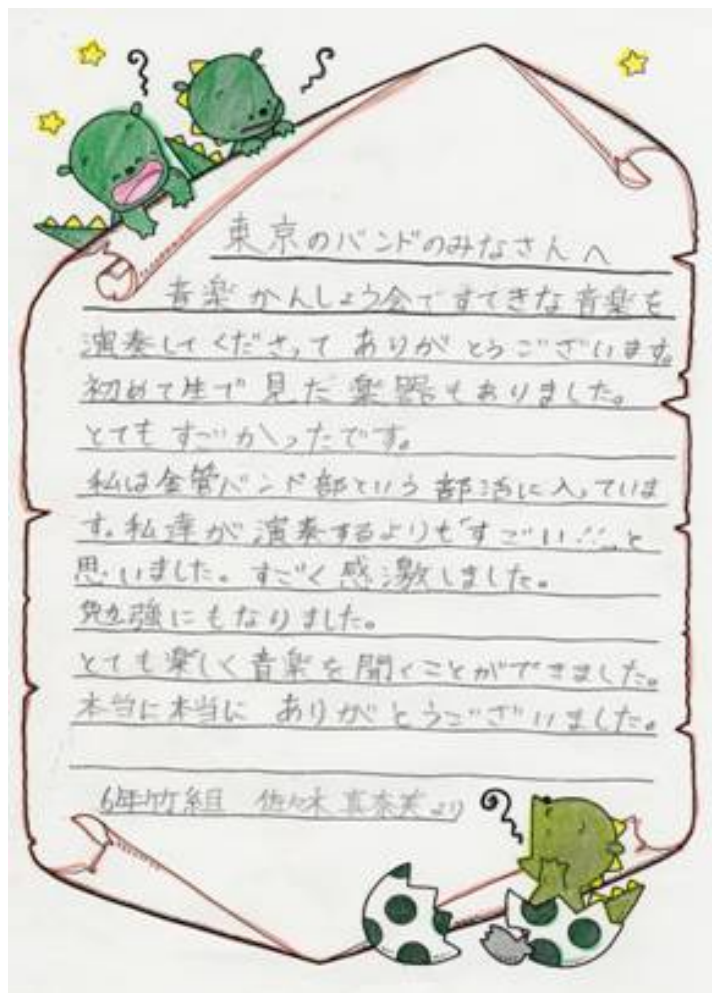 東京のバンドのみなさんへ
音楽かんしょう会ですてきな音楽を
演奏してくださって ありがとうございます。
初めて生で見た楽器もありました。
とてもすごかったです。
私は金管バンド部という部活に入っていま
す。私達が演奏するよりも「すごい!!」と
思いました。すごく感激しました。
勉強にもなりました。
とても楽しく音楽を聞くことができました。
本当に本当に ありがとうございました。
6年竹組 佐々木真奈美より